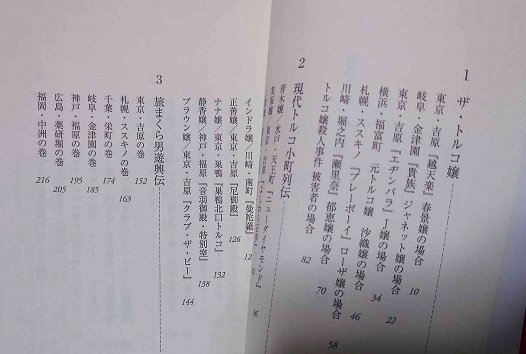 1 ザ・トルコ嬢
東京・吉原『越天楽』春景嬢の場合 10
岐阜・金津園『貴族』ジャネット嬢の場合 22
東京・吉原『エヂンバラ』J嬢の場合 34
横浜・福富町 元トルコ嬢 沙織嬢の場合 46
札幌・ススキノ『プレーボーイ』ローザ嬢の場合 58
川崎・堀之内『瀬里奈』郁恵嬢の場合 70
トルコ嬢殺人事件 被害者の場合 82
2 現代トルコ小町列伝
青木嬢／水戸・天王町『ニューダイヤモンド』 96
インドラ嬢／川崎・南町『曼陀羅』 12
正善嬢／東京・吉原『尼御殿』 126
ナナ嬢／東京・巣鴨『巣鴨北口トルコ』 132
静香嬢／神戸・福原『音羽御殿・特別室』 138
ブラウン嬢／東京・吉原『クラブ・ザ・ビー』 144
3 旅まくら男遊興伝
東京・吉原の巻 152
札幌・ススキノの巻 163
千葉・栄町の巻 174
岐阜・金津園の巻 185
神戸・福原の巻 195
広島・薬研堀の巻 205
福岡・中洲の巻 216